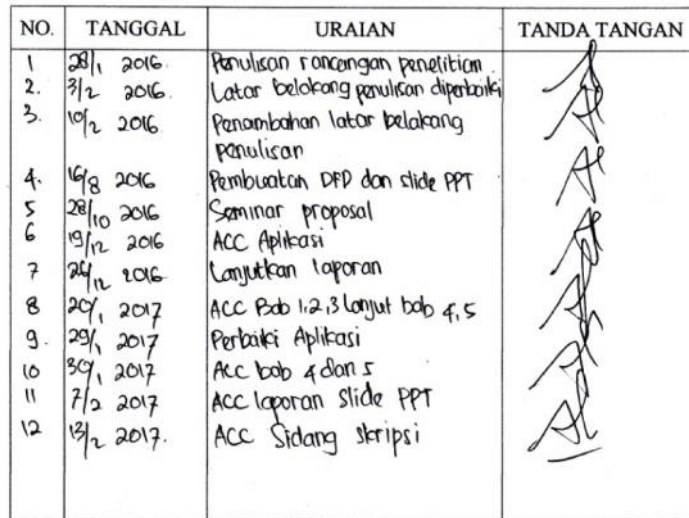 NO. TANGGAL URAIAN TANDA TANGAN
1 28/1 2016. Penulisan rancangan penelitian
2. 3/2 2016. Latar belakang penulisan diperbaiki
3. 10/2 2016 Penambahan latar belakang
penulisan
4. 16/8 2016 Pembuatan DFD dan slide PPT
5 28/10 2016 Seminar proposal
6 19/12 2016 ACC Aplikasi
7 26/12 2016 Lanjutkan laporan
8 20/1 2017 ACC Bab 1,2,3 lanjut bab 4,5
9. 29/1 2017 Perbaiki Aplikasi
10 30/1 2017 Acc bab 4 dan 5
11 7/2 2017 ACC laporan Slide PPT
12 13/2 2017. ACC Sidang skripsi